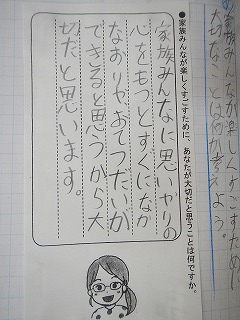 の家族みんなが楽しくすごすために
大切なことは何か考えよう。
●家族みんなが楽しくすごすために、あなたが大切だと思うことは何ですか。
家族みんなに思いやりの
心をもつとすぐになか
なおりや、おてつだいが
できると思うから大
切だと思います。